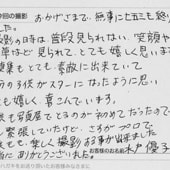 今回の撮影
おかげさまで、無事に七五三も終り
した。
撮影の時は、普段見られない、笑顔や
など見られて、とても嬉しく思いま
集も、とても素敵に出来ていて
の子供がスターになったように思い
も嬉しく、喜こんでいます。
も写真屋でとるのが初めてだったので
緊張していたけど、さすがプロで
も、楽しく撮影お事が出来ました
当にありがとうございました。
お客様のお名前 木戸優子